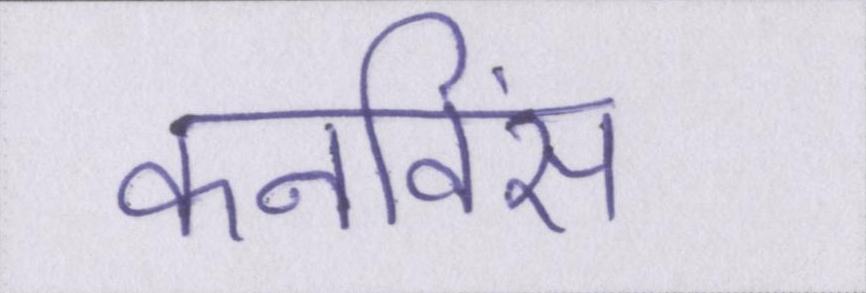 कनविंस